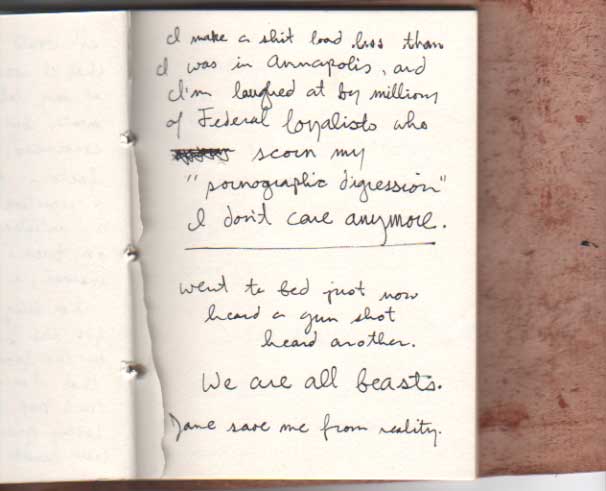 I make a shit load less than
I was in Annapolis, and
I'm laughed at by millions
of Federal loyalists who
scorn my
"pornographic digression"
I don't care anymore.
went to bed just now
heard a gun shot
heard another.
We are all beasts.
Jane save me from reality.